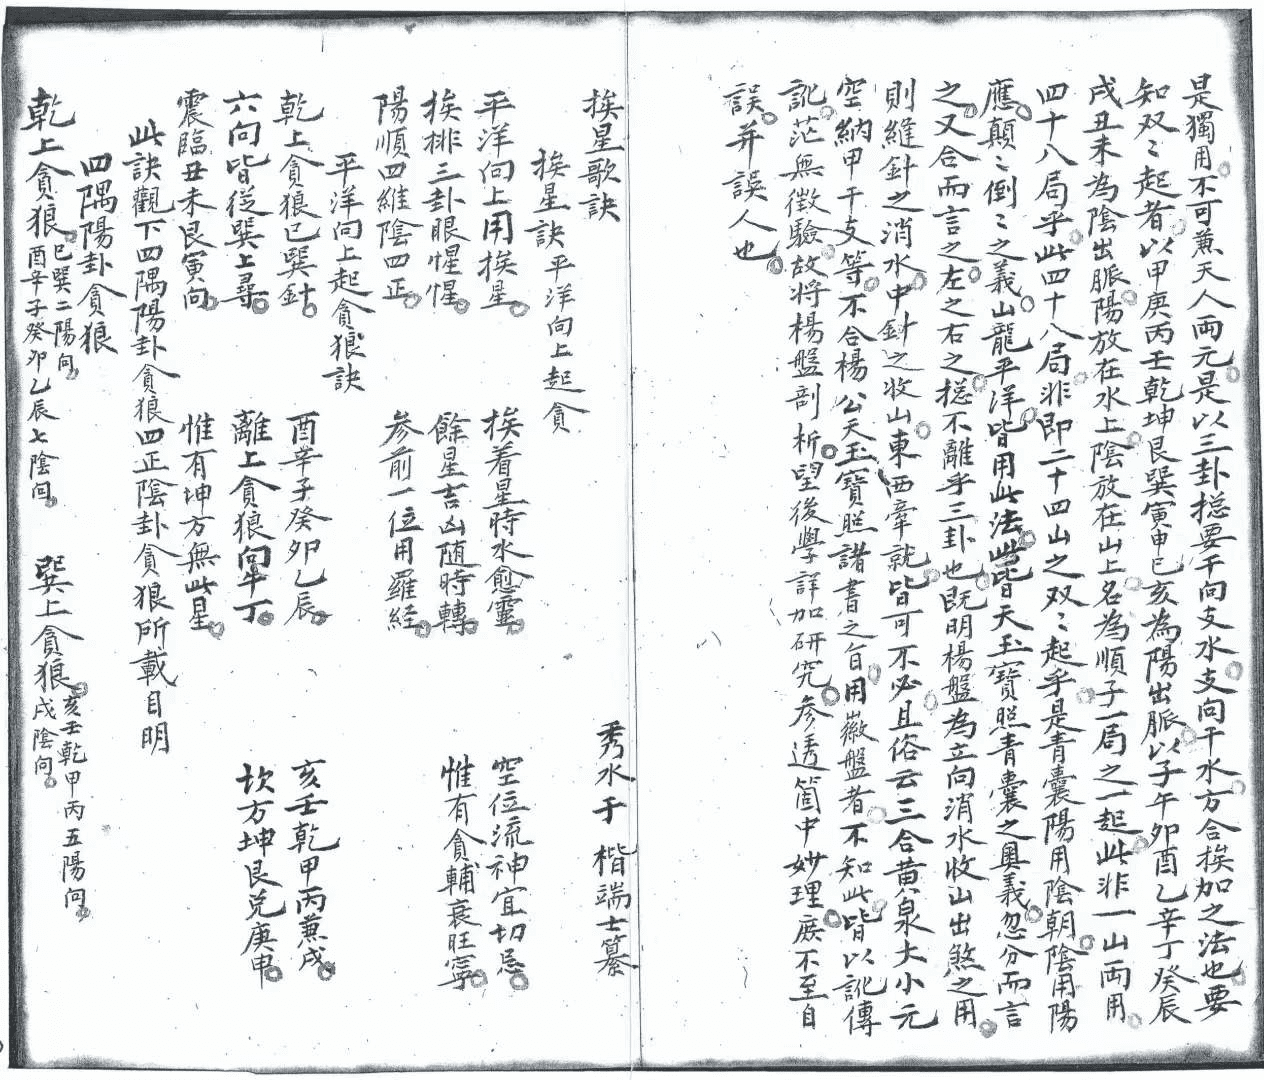 是獨用不可兼天人兩元是以三卦捴要干向支水支向干水方合挨加之法也要
知双〻起者以甲庚丙壬乾坤艮巽寅申巳亥為陽出脈以子午卯酉乙辛丁癸辰
戌丑未為陰出脈陽放在水上陰放在山上名為順子一局之一起此非一山兩用
四十八局乎此四十八局非即二十四山之双〻起乎是青囊陽用陰朝陰用陽
應顛〻倒〻之義山龍平洋皆用此法此皆天玉寶照青囊之奧義忽分而言
之又合而言之左之右之捴不離乎三卦也既明楊盤為立向消水收山出煞之用
則縫針之消水中針之收山東西牽就皆可不必且俗云三合黄泉大小元
空納甲干支等不合楊公天玉寶照諸書之旨用徽盤者不知此皆以訛傳
訛茫無徵驗故將楊盤剖析望後學詳加研究參透箇中妙理庶不至自
誤并誤人也
挨星歌訣 秀水于楷端士纂
挨星訣平洋向上起貪
平洋向上用挨星 挨着星時水愈靈 空位流神宜切忌
挨排三卦眼惺惺 餘星吉凶随時轉 惟有貪輔衰旺寧
陽順四維陰四正 参前一位用羅経
平洋向上起貪狼訣
乾上貪狼巳巽針 酉辛子癸卯乙辰 亥壬乾甲丙兼戌
六向皆從巽上尋 離上貪狼向午丁 坎方坤艮兑庚申
震臨丑未艮寅向 惟有坤方無此星
此訣觀下四隅陽卦貪狼四正陰卦貪狼所載自明
四隅陽卦貪狼
乾上貪狼巳巽二陽向酉辛子癸卯乙辰七陰向 巽上貪狼亥壬乾甲丙五陽向戌陰向